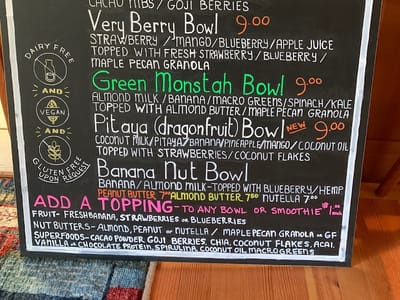 CACAO NIBS / GOJI BERRIES
Very Berry Bowl 9.00
STRAWBERRY / MANGO/BLUEBERRY/APPLE JUICE
TOPPED WITH FRESH STRAWBERRY / BLUEBERRY /
MAPLE PECAN GRANOLA
Green Monstah Bowl 9.00
ALMOND MILK / BANANA/MACRO GREENS/SPINACH/KALE
TOPPED WITH ALMOND BUTTER/MAPLE PECAN GRANOLA
Pitaya (dragonfruit) Bowl NEW 9.00
COCONUT MILK/PITAYA/BANANA/PINEAPPLE/MANGO/COCONUT OIL
TOPPED WITH STRAWBERRIES/COCONUT FLAKES
Banana Nut Bowl
BANANA/ALMOND MILK-TOPPED WITH BLUEBERRY/HEMP
PEANUT BUTTER 7.00 ALMOND BUTTER 7.50 NUTELLA 7.00
DAIRY FREE
AND
VEGAN
AND
GLUTEN FREE
UPON REQUEST
ADD A TOPPING - TO ANY BOWL OR SMOOTHIE $1.00
FRUIT- FRESH BANANA, STRAWBERRIES OR BLUEBERRIES
NUT BUTTERS- ALMOND, PEANUT OR NUTELLA / MAPLE PECAN GRANOLA OR GF
SUPERFOODS- CACAO POWDER, GOJI BERRIES, CHIA, COCONUT FLAKES, ACAI,
VANILLA OR CHOCOLATE PROTEIN, SPIRULINA, COCONUT OIL, MACROGREENS